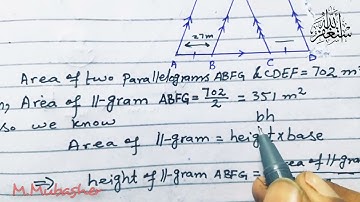 27m
A B C D
Area of two Parallelograms ABFG & CDEF = 702 m
Area of 11-gram ABFG = 702/2 = 351 m²
so we know
bh
Area of 11-gram = height × base
⇒ height of 11-gram ABFG = Area of 11-gram
M.Mubashe